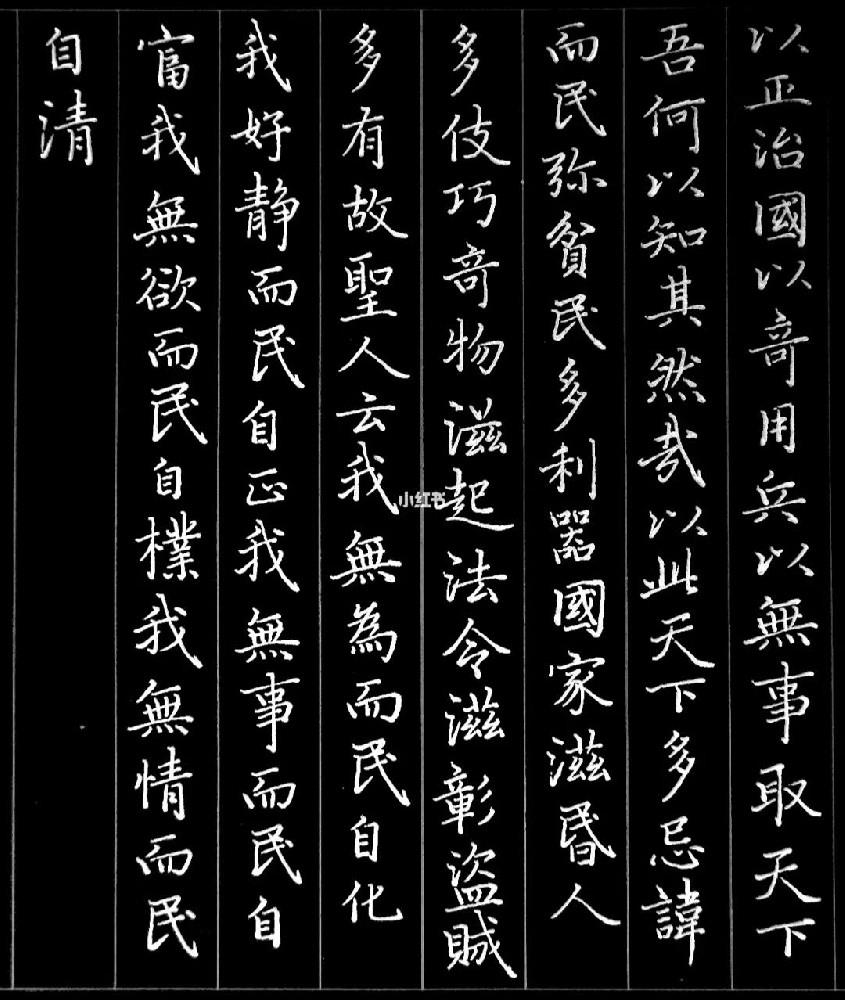 以正治國以奇用兵以無事取天下
吾何以知其然哉以此天下多忌諱
而民弥貧民多利器國家滋昬人
多伎巧奇物滋起法令滋彰盜賊
多有故聖人云我無為而民自化
我好静而民自正我無事而民自
富我無欲而民自樸我無情而民
自清
小红书